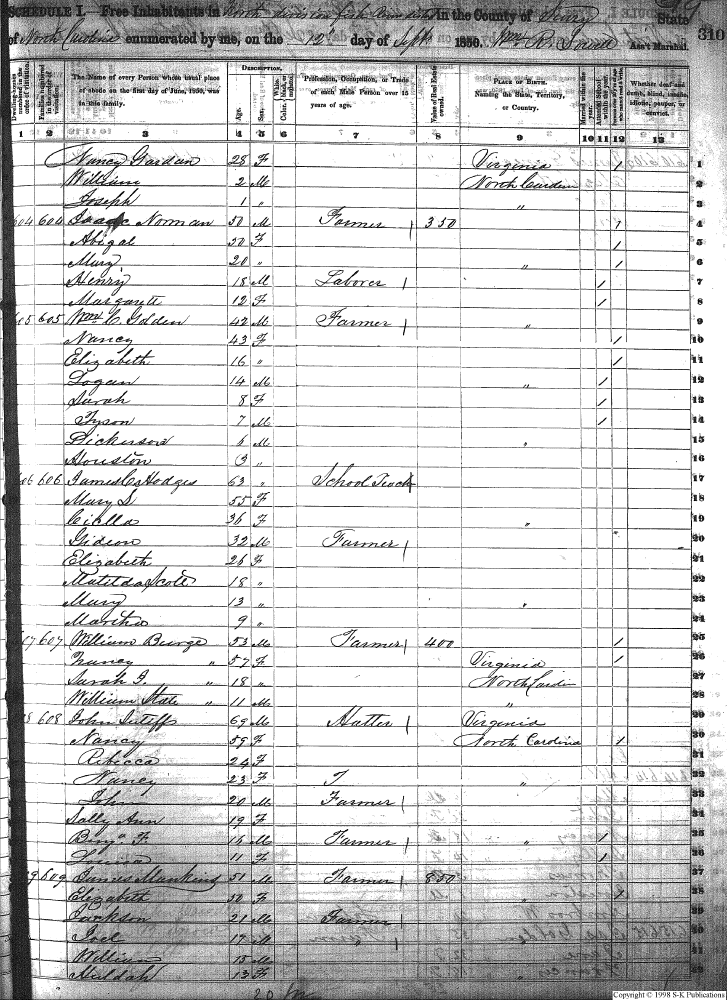 SCHEDULE I. Free Inhabitants in North division in the County of Surry State
of North Carolina enumerated by me, on the 12th day of Sept 1850. Wm R. Ass't Marshal. 310
Dwelling-houses numbered in the order of visitation.
Families numbered in the order of visitation.
The Name of every Person whose usual place of abode on the first day of June, 1850, was in this family.
DESCRIPTION.
Age.
Sex.
Color, White, black, or mulatto.
Profession, Occupation, or Trade of each Male Person over 15 years of age.
Value of Real Estate owned.
PLACE OF BIRTH. Naming the State, Territory, or Country.
Married within the year.
Attended School within the year.
Whether deaf and dumb, blind, insane, idiotic, pauper, or convict.
1 2 3 4 5 6 7 8 9 10 11 12 13
Nancy Gordan 28 F Virginia / 1
William 2 M North Carolina 2
Joseph 1 " " 3
604 604 Isaac Norman 50 M Farmer 350 / 4
Abigal 50 F / 5
Mary 20 " " / 6
Henry 18 M Laborer / 7
Margarett 12 F / 8
605 605 Wm C. Golden 42 M Farmer " 9
Nancy 43 F / 10
Elizabeth 16 " / 11
Logan 14 M " / 12
Sarah 8 F / 13
Tyson 7 M / 14
Dickerson 6 M " 15
Houston 3 " 16
606 606 James C Hodges 63 " School Teach 17
Mary S 55 F 18
36 F " 19
Gideon 32 M Farmer 20
Elizabeth 26 F 21
Matilda Scott 18 " 22
Mary 13 " " 23
Martha 9 " 24
607 607 William Burge 53 M Farmer 400 / 25
Nancy " 57 F Virginia / 26
Sarah J. " 18 " North Carolin 27
William " 11 M " 28
608 608 John 69 M Hatter Virginia 29
Nancy 59 F North Carolina / 30
Rebecca 24 F 31
Nancy 23 F " 32
John 20 M Farmer 33
Sally Ann 19 F 34
Benj. F. 16 M Farmer " / 35
11 F / 36
609 609 James Mankins 51 M Farmer 850 37
Elizabeth 50 F " 38
Jackson 21 M Farmer 39
Joel 17 M 40
William 15 M 41
Huldah 13 F " 42
Copyright © 1998 S-K Publications